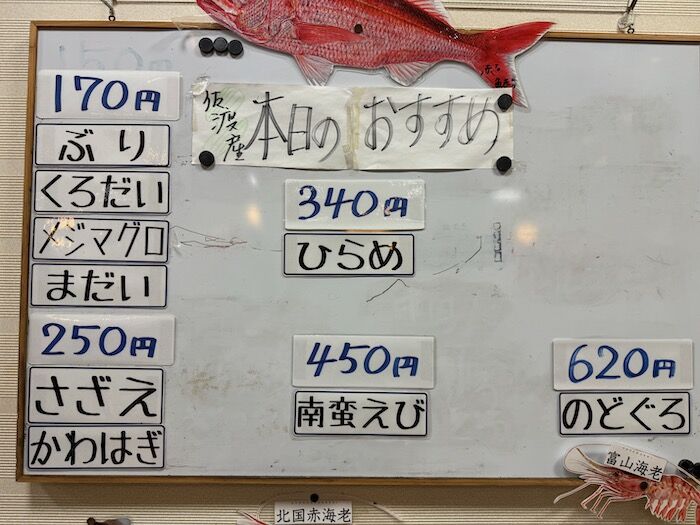 佐渡産
本日の おすすめ
170円
ぶり
くろだい
メジマグロ
まだい
250円
さざえ
かわはぎ
340円
ひらめ
450円
南蛮えび
620円
のどぐろ
北国赤海老
富山海老